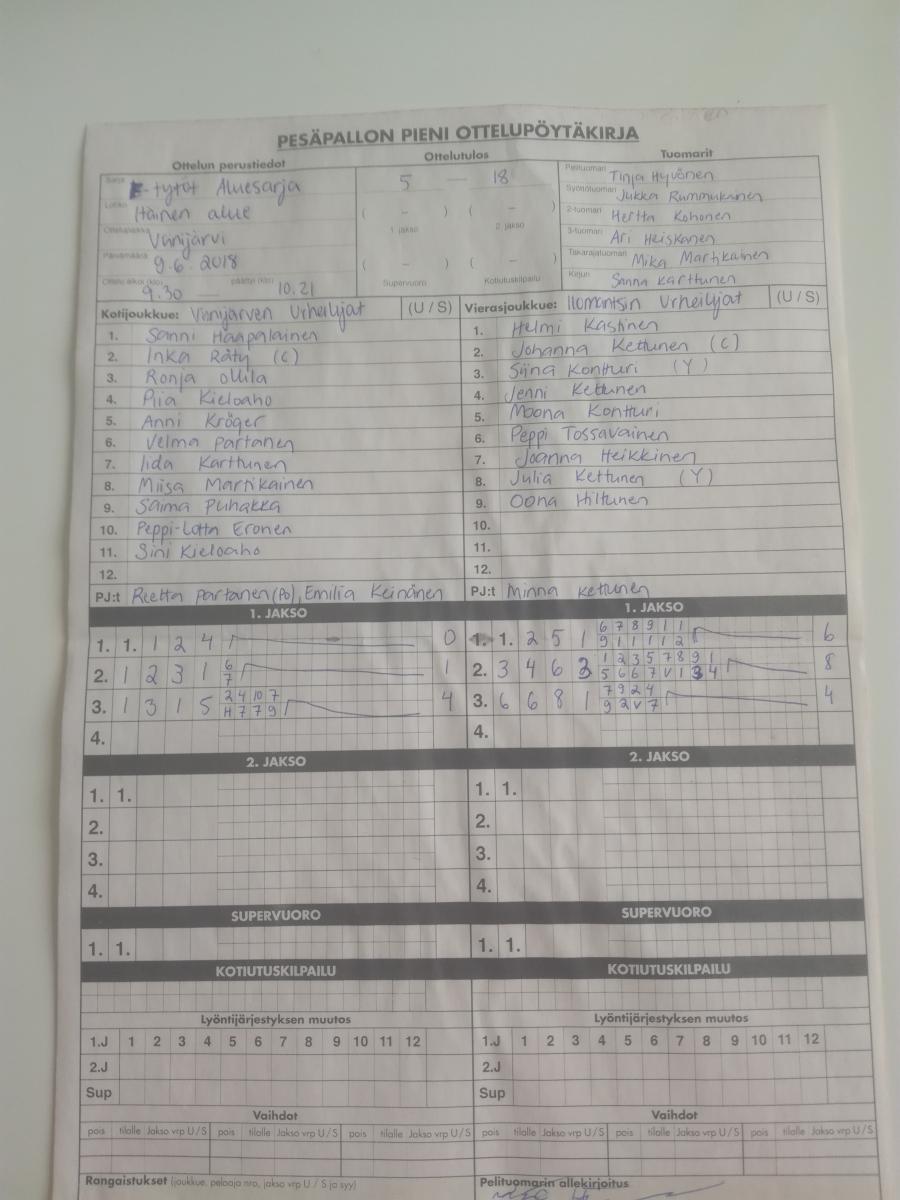 PESÄPALLON PIENI OTTELUPÖYTÄKIRJA
Ottelun perustiedot Ottelutulos Tuomarit
Sarja E-tytöt Aluesarja
Lohko Itäinen alue
Ottelupaikka Viinijärvi
Päivämäärä 9.6.2018
Ottelu alkoi (klo) 9.30 — päättyi (klo) 10.21
5 — 18
( - ) ( - )
1. jakso 2. jakso
( - ) ( - )
Supervuoro Kotiutuskilpailu
Pelituomari Tinja Hyvönen
Syöttötuomari Jukka Rummukainen
2-tuomari Hertta Kohonen
3-tuomari Ari Heiskanen
Takarajatuomari Mika Martikainen
Kirjuri Sanna Karttunen
Kotijoukkue: Viinijärven Urheilijat (U / S)
1. Sanni Haapalainen
2. Inka Räty (C)
3. Ronja Ollila
4. Piia Kieloaho
5. Anni Kröger
6. Velma Partanen
7. Iida Karttunen
8. Miisa Martikainen
9. Saima Puhakka
10. Peppi-Lotta Eronen
11. Sini Kieloaho
12.
PJ:t Reetta Partanen (Po), Emilia Keinänen
Vierasjoukkue: Ilomantsin Urheilijat (U / S)
1. Helmi Kastinen
2. Johanna Kettunen (C)
3. Siina Kontturi (Y)
4. Jenni Kettunen
5. Moona Kontturi
6. Peppi Tossavainen
7. Joanna Heikkinen
8. Julia Kettunen (Y)
9. Oona Hiltunen
10.
11.
12.
PJ:t Minna Kettunen
1. JAKSO
1. 1. 1 2 4 0
2. 1 2 3 1 6 1
7
3. 1 3 1 5 2 4 10 7 4
H 7 7 9
4.
1. JAKSO
1. 1. 2 5 1 6 7 8 9 1 1 6
9 1 1 1 1 2
2. 3 4 6 3 1 2 3 5 7 8 9 1 8
5 6 6 7 V 1 3 4
3. 6 6 8 1 7 9 2 4 4
9 2 V 7
4.
2. JAKSO
1. 1.
2.
3.
4.
2. JAKSO
1. 1.
2.
3.
4.
SUPERVUORO SUPERVUORO
1. 1. 1. 1.
KOTIUTUSKILPAILU KOTIUTUSKILPAILU
Lyöntijärjestyksen muutos Lyöntijärjestyksen muutos
1.J 1 2 3 4 5 6 7 8 9 10 11 12 1.J 1 2 3 4 5 6 7 8 9 10 11 12
2.J 2.J
Sup Sup
Vaihdot Vaihdot
pois tilalle Jakso vrp U / S pois tilalle Jakso vrp U / S pois tilalle Jakso vrp U / S pois tilalle Jakso vrp U / S pois tilalle Jakso vrp U / S pois tilalle Jakso vrp U / S
Rangaistukset (joukkue, pelaaja nro, jakso vrp U / S ja syy) Pelituomarin allekirjoitus